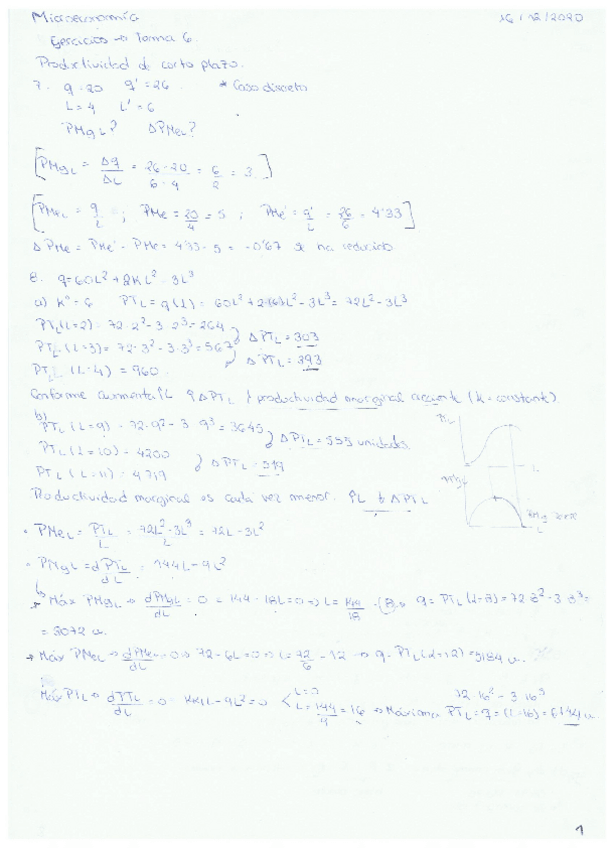 Microeconomía 16/12/2020
Ejercicios → Tema 6.
Productividad de corto plazo.
7. q=20 q'=26 * Caso discreto
L=4 L'=6
PMgL? ΔPMeL?
[PMgL = Δq/ΔL = 26-20/6-4 = 6/2 = 3]
[PMeL = q/L ; PMe = 20/4 = 5 ; PMe' = q'/L = 26/6 = 4'33]
ΔPMe = PMe' - PMe = 4'33 - 5 = -0'67 se ha reducido
8. q=60L²+2KL²-3L³
a) K=6 PTL = q(L) = 60L²+2(6)L²-3L³ = 72L²-3L³
PTL(L=2) = 72·2²-3·2³ = 264
ΔPTL = 303
PTL(L=3) = 72·3²-3·3³ = 567
ΔPTL = 393
PTL(L=4) = 960
Conforme aumenta ↑L ↑ΔPTL productividad marginal creciente (K = constante).
b)
PTL(L=9) = 72·9²-3·9³ = 3645
ΔPTL = 555 unidades
PTL(L=10) = 4200
ΔPTL = 519
PTL(L=11) = 4719
Productividad marginal es cada vez menor. ↑L ↓ΔPTL
PTL
L
PMgL
L
PMeL = PTL/L = 72L²-3L³/L = 72L-3L²
PMgL = dPTL/dL = 144L-9L²
Máx PMgL → dPMgL/dL = 0 = 144-18L=0 → L = 144/18 = (8) → q = PTL(L=8) = 72·8²-3·8³ =
= 3072 u.
→ Máx PMeL → dPMeL/dL = 0 → 72-6L=0 → L = 72/6 = 12 → q = PTL(L=12) = 5184 u.
72·16²-3·16³
Máx PTL → dPTL/dL = 0 144L-9L²=0 L=0 L=144/9=16 → Máxima PTL = q = (L=16) = 6144 u
1